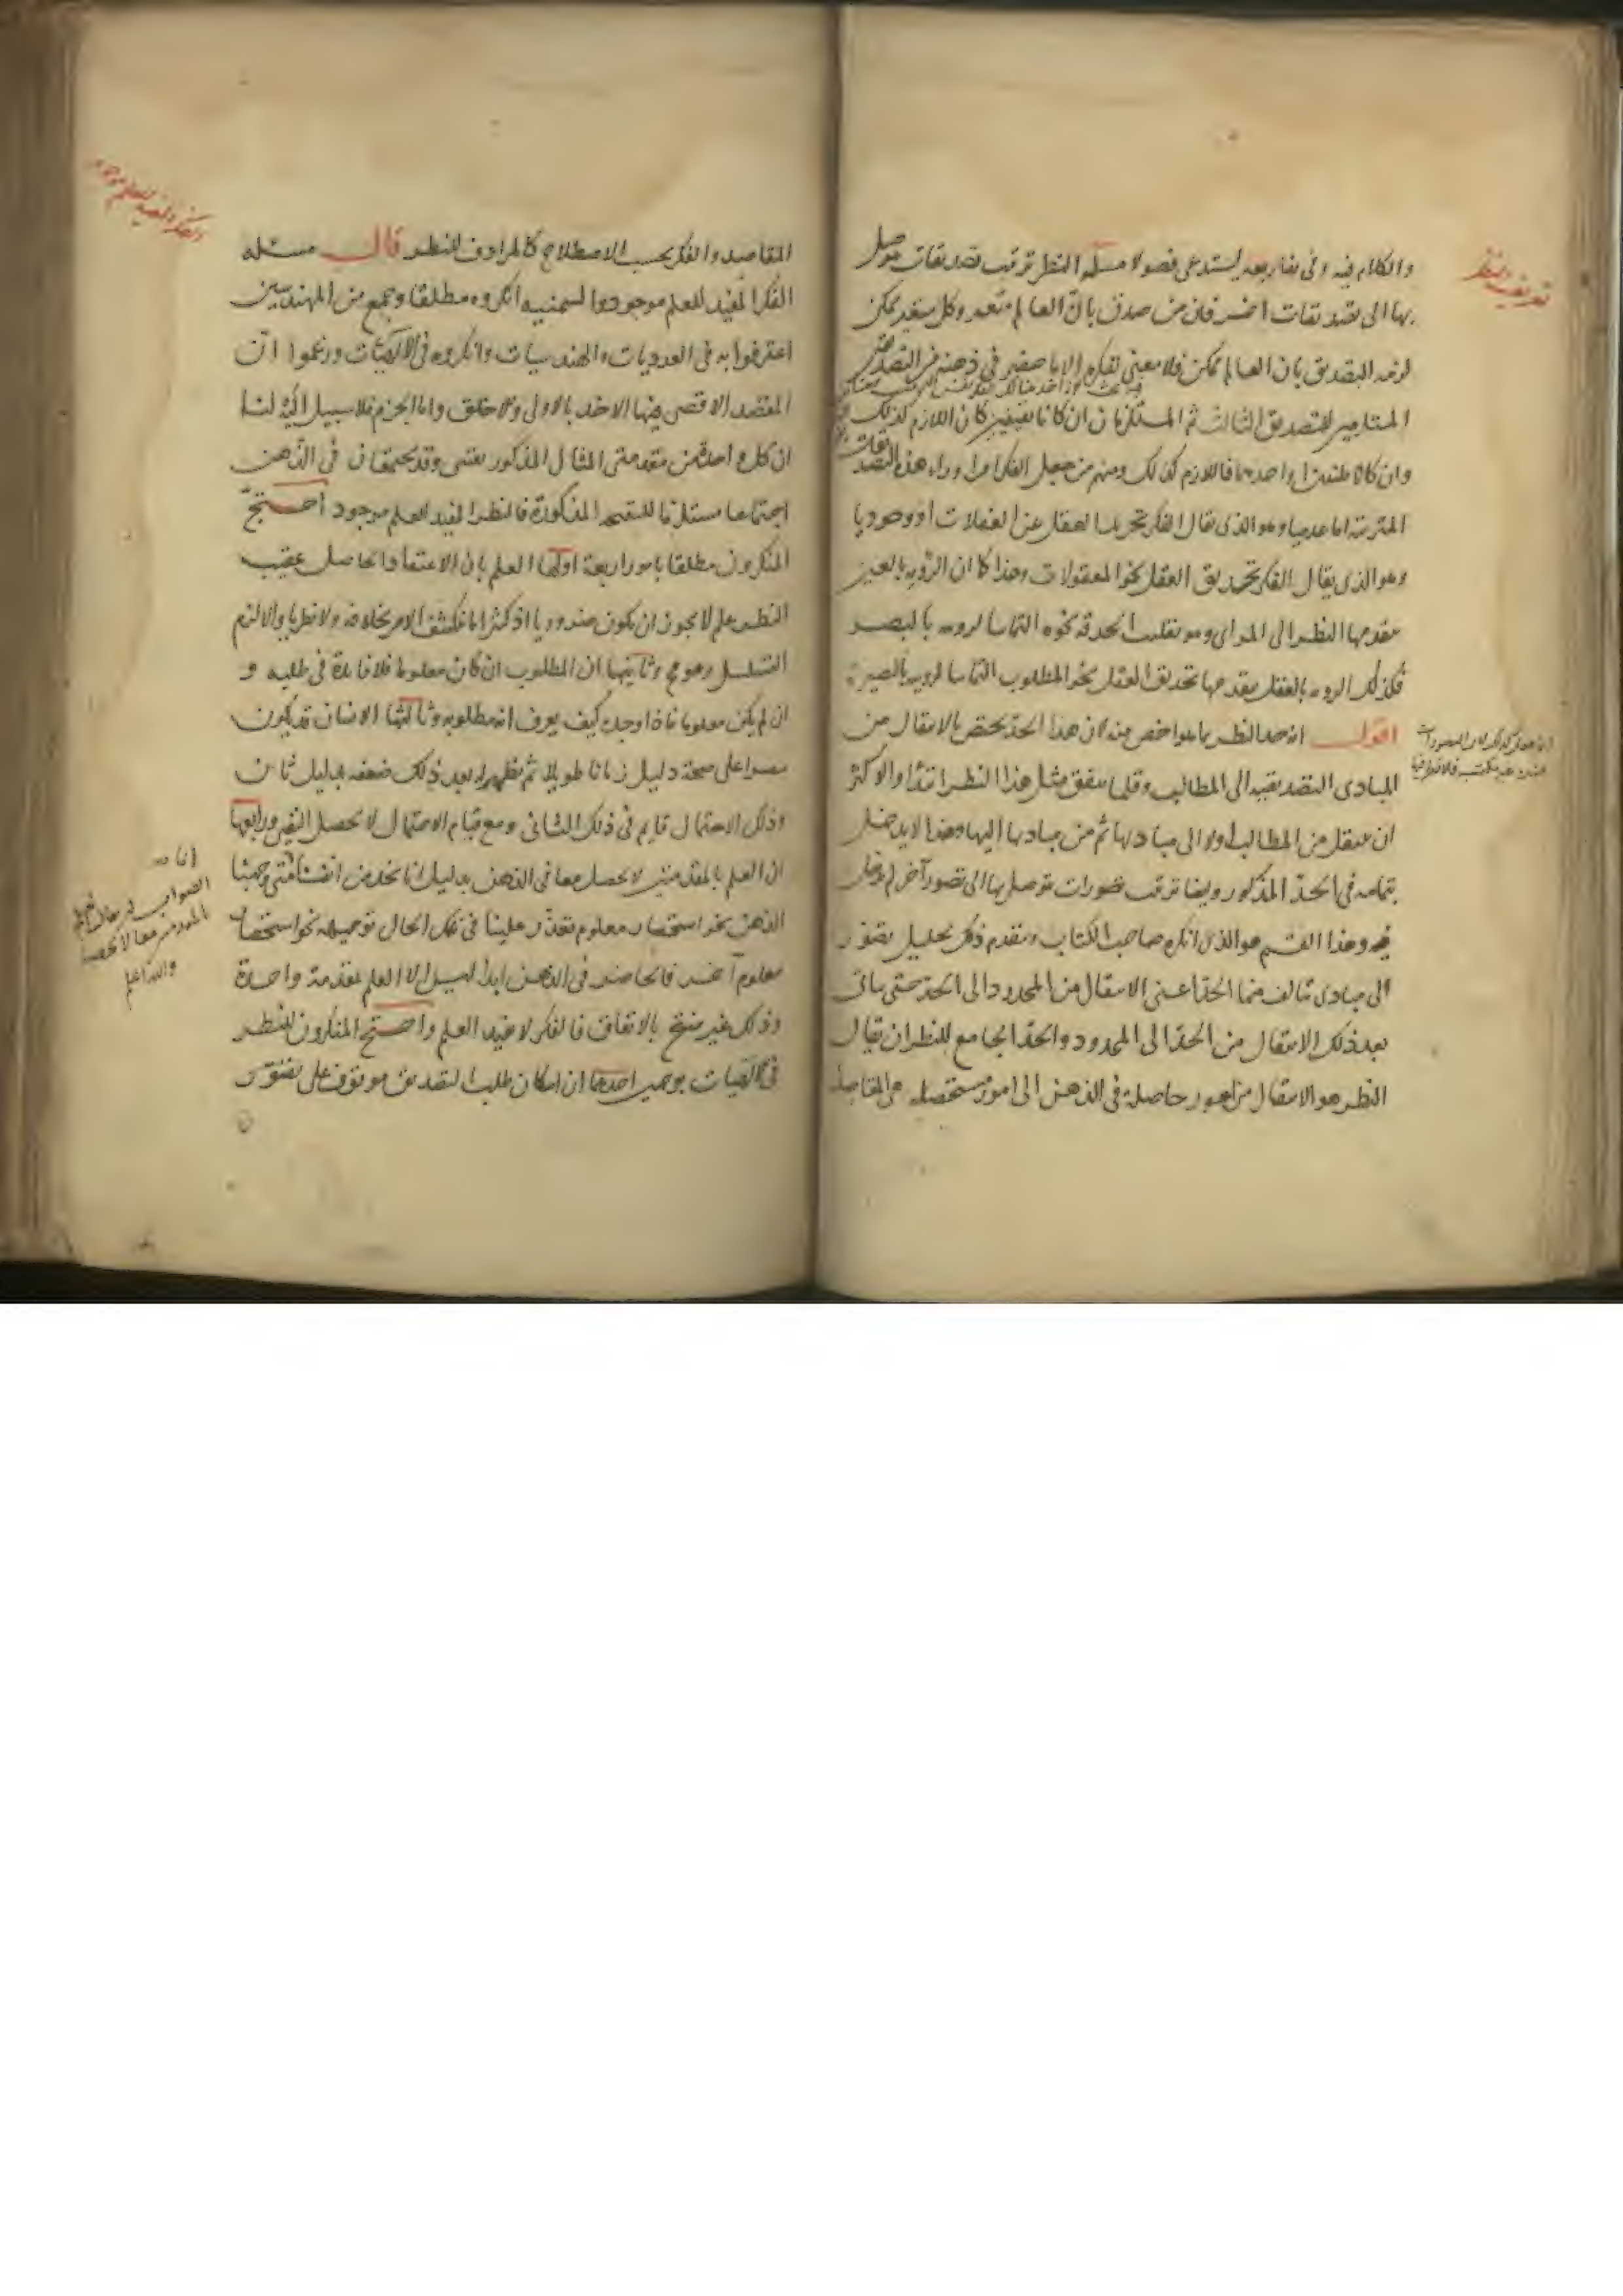 تعريف النظر
والكلام فيه وفى تفاريعه يستدعى فصولا مسئلة النظر ترتيب تصديقات يتوصل
بها الى تصديقات اخر فان من صدق بان العالم متغير وكل متغير ممكن
لزمه التصديق بان العالم ممكن فلا معنى لفكره الا ما حضر فى ذهنه من التصديقين
المستلزمين للتصديق الثالث ثم المستلزمان ان كانا يقينيين كان اللازم كذلك
وان كانا ظنيين او احدهما فاللازم كذلك ومنهم من جعل الفكر امرا وراء هذه التصديقات
المترتبة اما عدميا وهو الذى يقال الفكر تجريد العقل عن الغفلات او وجوديا
وهو الذى يقال الفكر تحديق العقل نحو المعقولات وهذا كما ان الرؤية بالعين
يتقدمها النظر الى المرئى وهو تقليب الحدقة نحوه التماسا لرؤيته بالبصر
فكذلك الرؤية بالعقل يتقدمها تحديق العقل نحو المطلوب التماسا لرؤيته بالبصيرة
اقول انه حد النظر بما هو اخص منه لان هذا الحد يختص بالانتقال من
المبادى التصديقية الى المطالب وقلما يتفق مثل هذا النظر ابتداء والاكثر
ان ينتقل من المطالب اولا الى مباديها ثم من مباديها اليها وهذا لا يدخل
بتمامه فى الحد المذكور وايضا ترتيب تصورات يتوصل بها الى تصور آخر لم يدخل
فيه وهذا القسم هو الذى انكره صاحب الكتاب ويتقدم ذلك تحليل تصور
الى مبادى تتالف منها الحد اعنى الانتقال من المحدود الى الحد حتى ياتى
بعد ذلك الانتقال من الحد الى المحدود والحد الجامع للنظر ان يقال
النظر هو الانتقال من امور حاصلة فى الذهن الى امور مستحصلة هى المقاصد
الفكر المفيد للعلم موجود
المقاصد والفكر بحسب الاصطلاح كالمرادف للنظر قال مسئله
الفكر المفيد للعلم موجود والسمنيه انكروه مطلقا وجمع من المهندسين
اعترفوا به فى العدديات والهندسيات وانكروه فى الالهيات وزعموا ان
المقصد الاقصى فيها الاخذ بالاولى والاخلق واما الجزم فلا سبيل اليه لنا
ان كل واحد من مقدمتى المثال المذكور يقينى وقد يجتمعان فى الذهن
اجتماعا مستلزما للنتيجة المذكورة فالنظر المفيد للعلم موجود احتج
المنكرون مطلقا بامور اربعة اولها العلم بان الاعتقاد الحاصل عقيب
النظر علم لا يجوز ان يكون ضروريا اذ كثيرا ما ينكشف الامر بخلافه ولا نظريا والا لزم
التسلسل وهو مح وثانيها ان المطلوب ان كان معلوما فلا فائدة فى طلبه و
ان لم يكن معلوما فاذا وجده كيف يعرف انه مطلوبه وثالثها الانسان قد يكون
مصرا على صحة دليل زمانا طويلا ثم يظهر له بعد ذلك ضعفه بدليل ثان
وذلك الاحتمال قايم فى ذلك الثانى ومع قيام الاحتمال لا يحصل اليقين ورابعها
ان العلم بالمقدمتين لا يحصل معا فى الذهن بدليل انا نجد من انفسنا متى وجهنا
الذهن نحو استحضار معلوم تعذر علينا فى تلك الحال توجيهه نحو استحضار
معلوم آخر فالحاضر فى الذهن ابدا ليس الا العلم بمقدمة واحدة
وذلك غير منتج بالاتفاق فالفكر لا يفيد العلم واحتج المنكرون للنظر
فى الالهيات بوجهين احدهما ان امكان طلب التصديق موقوف على تصور
الصواب ان يقال العلم
بالمقدمتين معا لا يحصل
والله اعلم